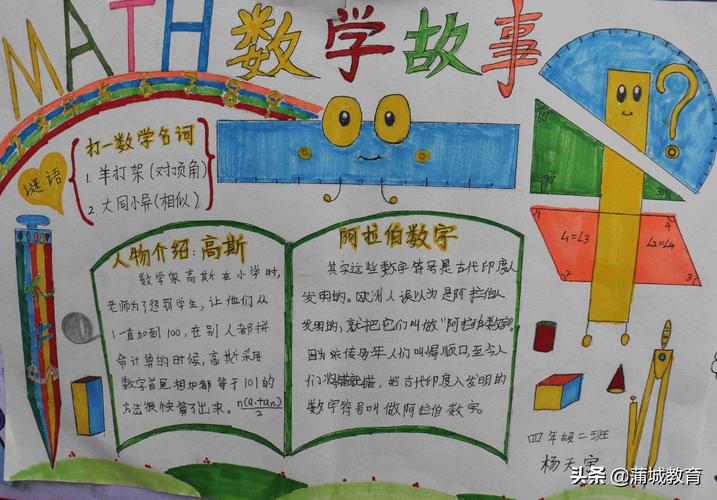 MATH 数学故事
1 2 3 4 5 6 7 8 9
谜语
打一数学名词
1. 羊打架(对顶角)
2. 大同小异(相似)
人物介绍:高斯
数学家高斯在小学时,
老师为了惩罚学生,让他们从
1一直加到100,在别人都拼
命计算的时候,高斯采用
数字首尾相加都等于101的
方法很快算了出来。n(a₁+aₙ)/2
阿拉伯数字
其实这些数字符号是古代印度人
发明的。欧洲人误以为是阿拉伯人
发明的,就把它们叫做"阿拉伯数字"。
因为流传多年人们叫得顺口,至今人
们将错就错,把古代印度人发明的
数字符号叫做阿拉伯数字。
60°
90°
30°
?
1
4
∠1=∠3
∠2=∠4
2
3
四年级二班
头条 @蒲城教育